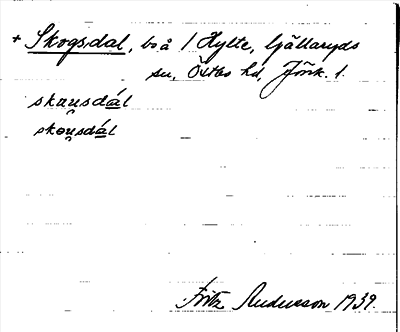 + Skogsdal, bo å 1 Hylte, Gällaryds
sn, Östbo hd, Jönk. l.
skau̯sdál
skou̯sdál
Fritz Andersson 1939.